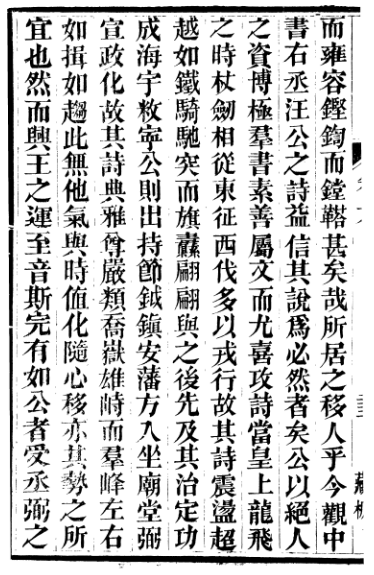 而雍容鏗鍧而鏜鞳甚矣哉所居之移人乎今觀中
書右丞汪公之詩益信其說爲必然者矣公以絕人
之資博極羣書素善屬文而尤喜攻詩當皇上龍飛
之時杖劒相從東征西伐多以戎行故其詩震盪超
越如鐵騎馳突而旗纛翩翩與之後先及其治定功
成海宇敉寧公則出持節鉞鎭安藩方入坐廟堂弼
宣政化故其詩典雅尊嚴類喬嶽雄峙而羣峰左右
如揖如趨此無他氣與時值化隨心移亦其勢之所
宜也然而興王之運至音斯完有如公者受丞弼之